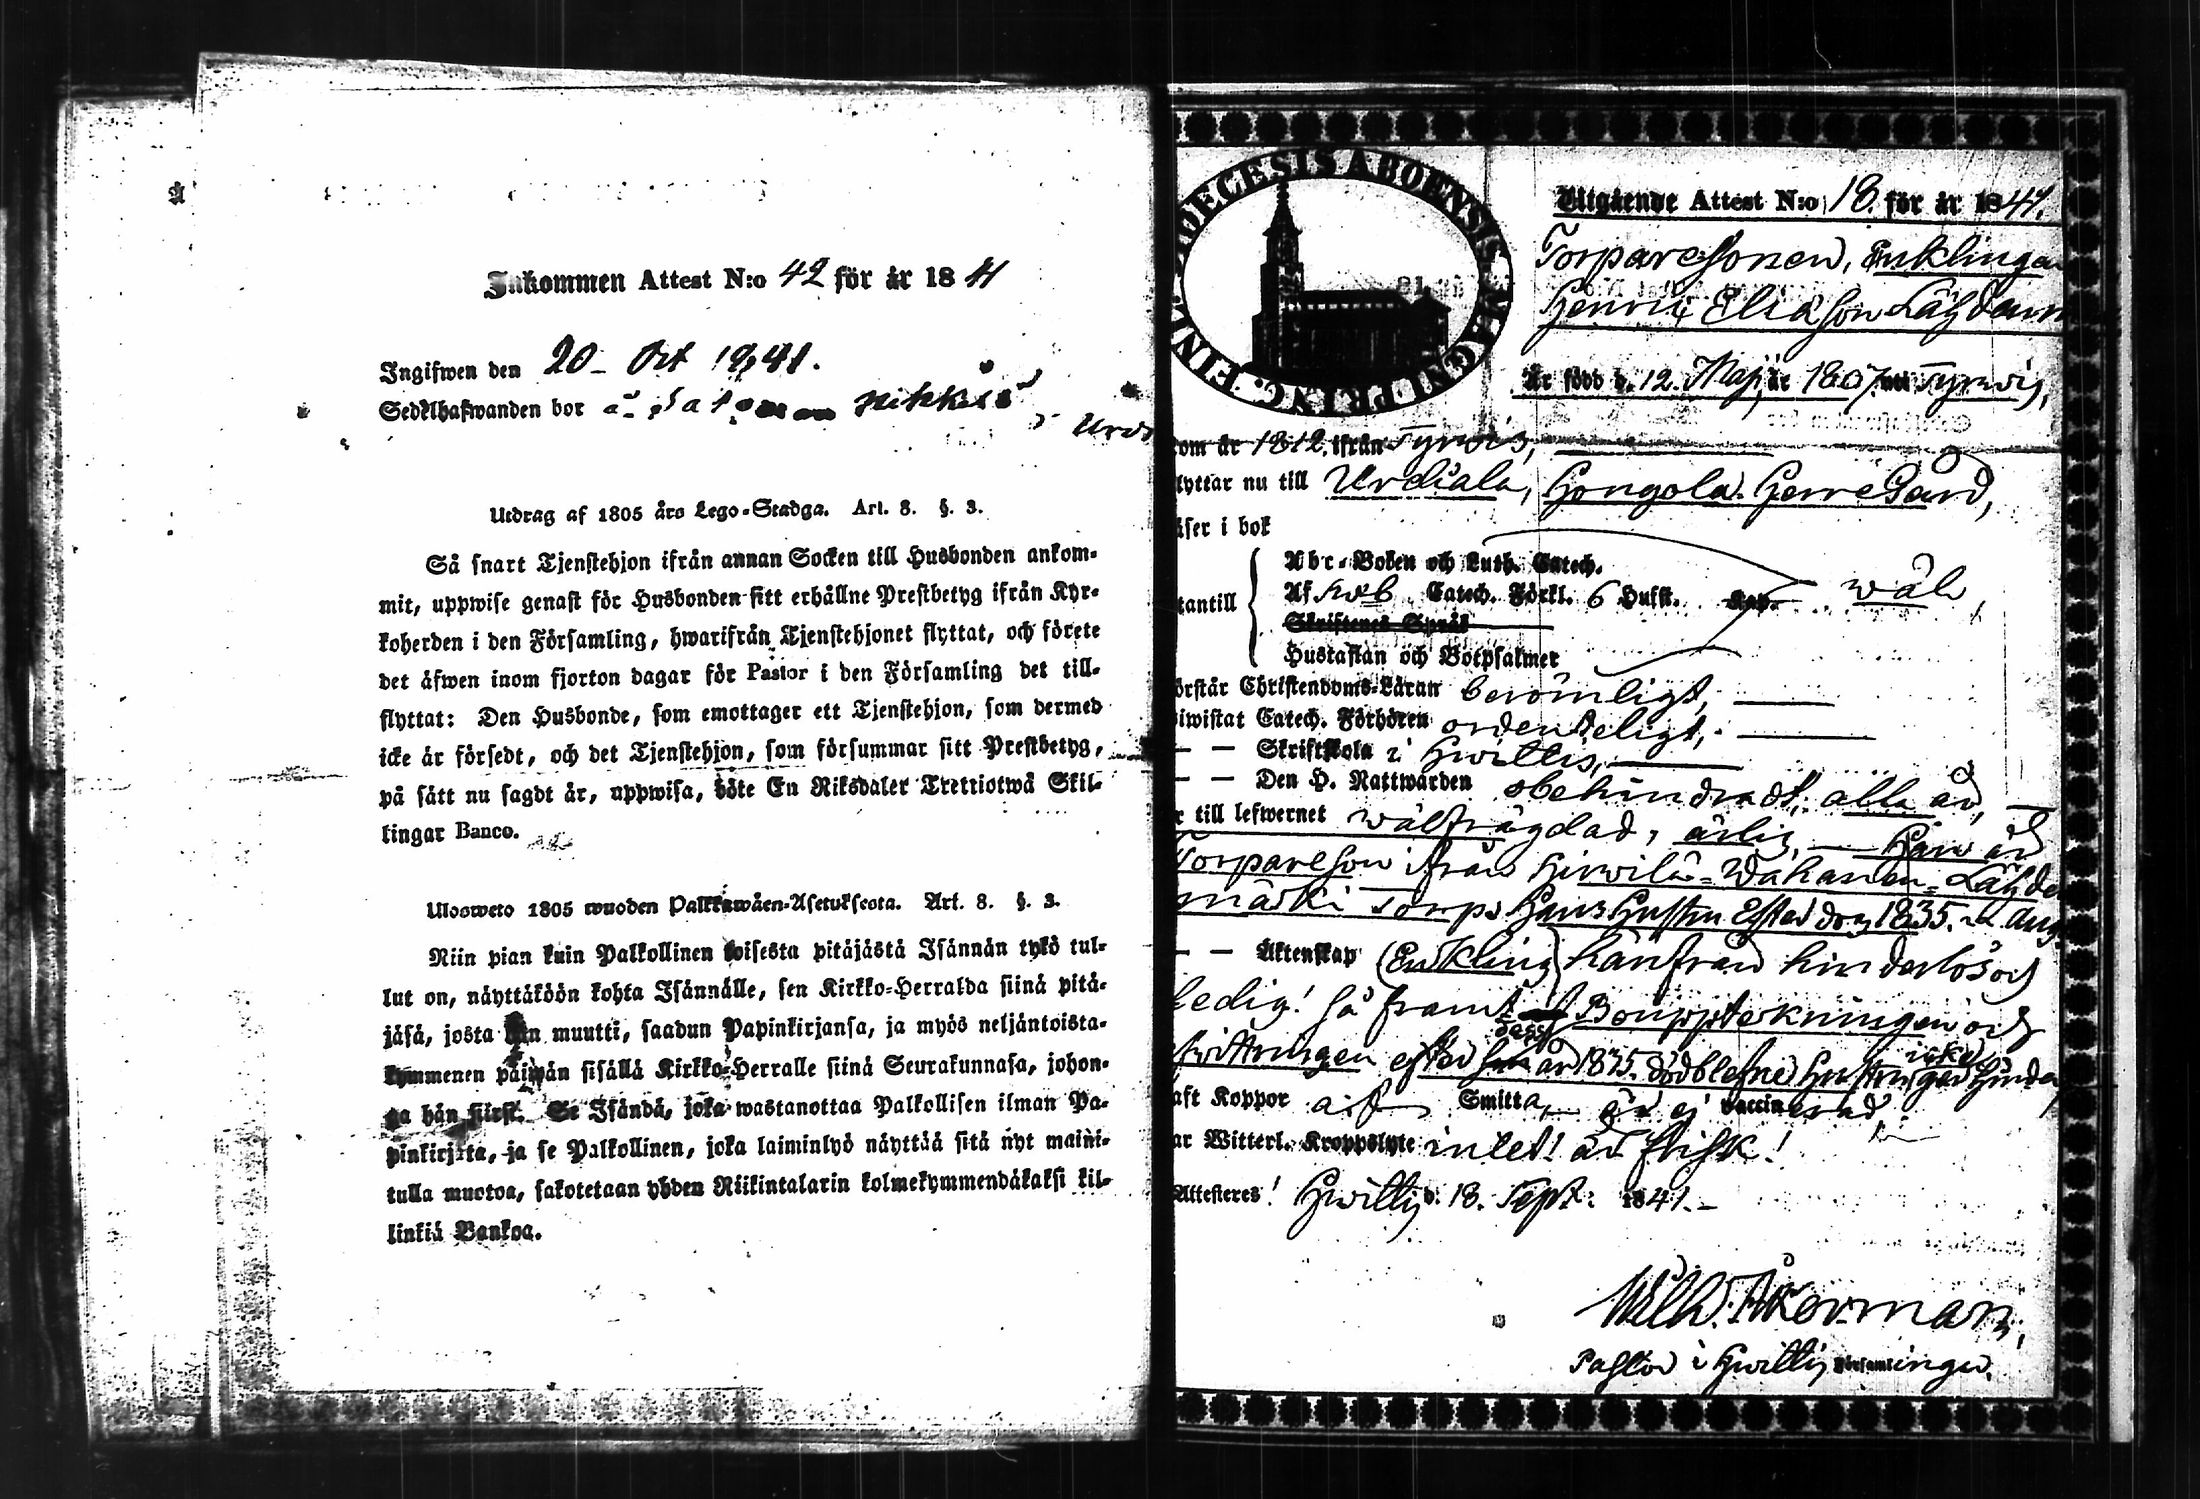 Inkommen Attest N:o 42 för år 1841
Ingifwen den 20 Oct 1841.
Sedelhafwanden bor å
Utdrag af 1805 års Lego-Stadga. Art. 8. §. 3.
Så snart Tjenstehjon ifrån annan Socken till Husbonden ankom-
mit, uppwise genast för Husbonden sitt erhållne Prestbetyg ifrån Kyr-
koherden i den Församling, hwarifrån Tjenstehjonet flyttat, och förete
det äfwen inom fjorton dagar för Pastor i den Församling det till-
flyttat: Den Husbonde, som emottager ett Tjenstehjon, som dermed
icke är försedt, och det Tjenstehjon, som försummar sitt Prestbetyg,
på sätt nu sagdt är, uppwisa, böte En Riksdaler Trettiotwå Skil-
lingar Banco.
Ulosweto 1805 wuoden Palkkawäen-Asetuksesta. Art. 8. §. 3.
Niin pian kuin Palkollinen toisesta pitäjästä Isännän tykö tul-
lut on, näyttäköön kohta Isännälle, sen Kirkko-Herralda siinä pitä-
jäsä, josta hän muutti, saadun Papinkirjansa, ja myös neljäntoista-
kymmenen päiwän sisällä Kirkko-Herralle siinä Seurakunnasa, johon-
ga hän siirst. Se Isändä, joka wastanottaa Palkollisen ilman Pa-
pinkirjata, ja se Palkollinen, joka laiminlyö näyttää sitä nyt maini-
tulla muotoa, sakotetaan yhden Riikintalarin kolmekymmendäkaksi kil-
linkiä Bankoa.
DIOECESIS ABOENSIS MAGNI PRINC. FINL.
Utgående Attest N:o 18. för år 1841.
Torparesonen, Enklingen
Henric Eliasson
Är född d. 12. Maji, år 1807. uti Tyrwis,
kom år 1812. ifrån Tyrwis,
flyttar nu till Urdiala, Hongola Herregård,
läser i bok
utantill
Abr-Boken och Luth. Catech.
Af Sweb. Catech. Förkl. 6 Husst. Kap. wäl,
Skriftenes Språk
Hustaflan och Botpsalmer
förstår Christendoms-Läran berömligt,
biwistat Catech. Förhören ordenteligt,
— — Skriftskola i Hwittis,
— — Den H. Nattwarden obehindradt, alla år,
är till lefwernet wälfrägdad, ärlig, — Han är
Torpareson ifrån
torp 1835.
— — Äktenskap (Enkling) härifrån hinderlös och
ledig! så framt Bouppteckningen och
efter 1835.
haft Koppor Smitta, är ej vaccinerad
har Witterl. Kroppslyte intet! är frisk!
Attesteres! Hwittis d. 18. Sept: 1841.
Wilh. Åkerman,
Pastor i Hwittis Församlingar.